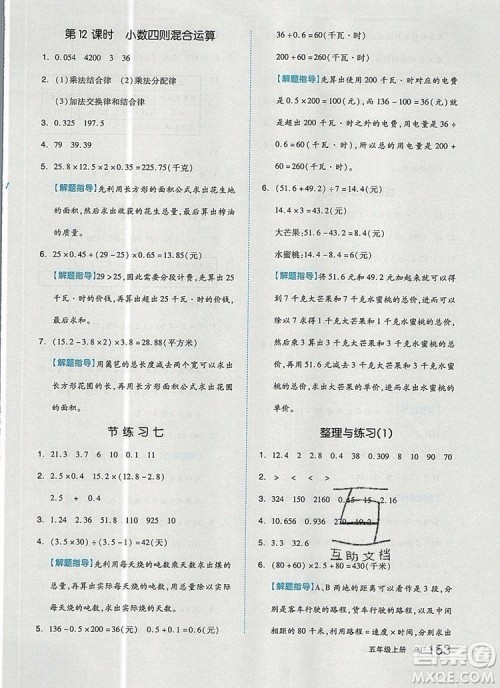 第 12 课时　小数四则混合运算
1. 0.054　4200　3　36
2. (1)乘法结合律　(2)乘法分配律
(3)加法交换律和结合律
3. 0.325　197.5
4. 79　39.39
5. 25.8×12.5×2÷100=225.75(千克)
【解题指导】先利用长方形的面积公式求出花生地
的面积，然后求出收获的花生总量，最后算出榨油
的质量。
6. 25×0.45+(29-25)×0.6=13.65(元)
【解题指导】29>25，因此需要分段计费，先算出 25
千瓦·时的价钱，然后算出超过 25 千瓦·时的价
钱，最后求和。
7. (15.2-3.8)×2×3.8÷2=28.88(平方米)
【解题指导】用篱笆的总长度减去三角形的底求出
梯形花圃的高，然后利用梯形面积公式求出花圃
的面积。
节 练 习 七
1. 21.3　3.7　60　5.6　5　15.2
2. 2.5×0.4　15.2×(12.8-2.8)
2.5+0.15
3. 1.24　2.7　33　929　10　9
4. 2.4×30÷(2.4-0.8)=45(天)
【解题指导】先利用每天烧的吨数乘天数求出煤的
总量，再用总量除以实际每天烧的吨数，而实际
每天烧的吨数可以用计划每天烧的吨数减去每天
节约的吨数求出。
5. 136-0.5×200=36(元)
36÷0.6=60(千瓦·时)
200+60=260(千瓦·时)
【解题指导】先算出使用 200 千瓦·时的电费
是 0.5×200=100(元)，136-100=36(元)是使
用超出 200 千瓦·时之外的电费，用电量 36÷
0.6=60(千瓦·时)，最后加上 200 千瓦·时，
求出总用电量。
6. (51.6+49.2)÷7=14.4(元)
(51.6-49.2)÷(4-3)=2.4(元)
大芒果：(14.4+2.4)÷2=8.4(元)
水蜜桃：14.4-8.4=6(元)
【解题指导】将 51.6 元和 49.2 元的总价相加可
以得到 7 千克大芒果和 7 千克水蜜桃的总价，进
而求出 1 千克大芒果和 1 千克水蜜桃的总价。
用 51.6 元减 49.2 元可以求出 1 千克大芒果比
1 千克水蜜桃贵的价钱，然后求出大芒果和水蜜
桃的单价。
整理与练习(1)
1. 12.4　2.9　0.38　0.109　8　10　90　70
2. ＞　＜　＜　＞
3. 324　150　2160　0.45　15　2.16
4. 10.656　0.936　270　19.2
5. 200÷(80-60)×2=20(千米)
6. (80+60)×2.5+80=430(千米)
【解题指导】A、B 两地的距离可以看作 3 段，分
别是客车行驶的路程，货车行驶的路程，以及中
间相距的路程，将 3 段路程相加就能求出答案。
互助文档
五年级上册　153
答案圈
MXQE.COM